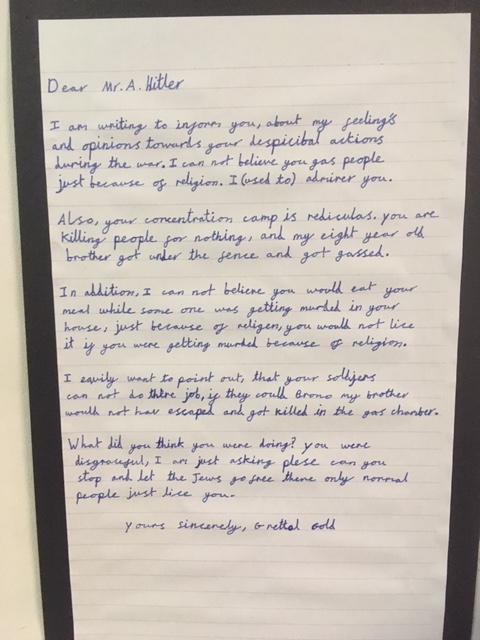 Dear Mr. A. Hitler
I am writing to inform you, about my feelings
and opinions towards your despicibal actions
during the war. I can not believe you gas people
just because of religion. I (used to) admirer you.
Also, your concentration camp is rediculas. you are
killing people for nothing, and my eight year old
brother got under the fence and got gassed.
In addition, I can not believe you would eat your
meal while some one was getting murded in your
house, just because of religen, you would not lice
it if you were getting murded because of religion.
I equily want to point out, that your solijers
can not do there job, if they could Brono my brother
would not hav escaped and got killed in the gas chamber.
What did you think you were doing? you were
disgraceful, I am just asking plese can you
stop and let the Jews go free there only normal
people just lice you.
Yours sincerely, Grettal Gold